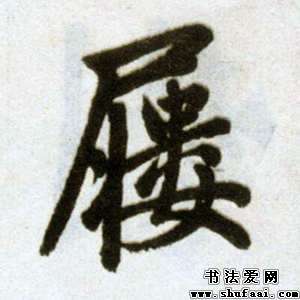 屨
书法爱网
www.shufaai.com